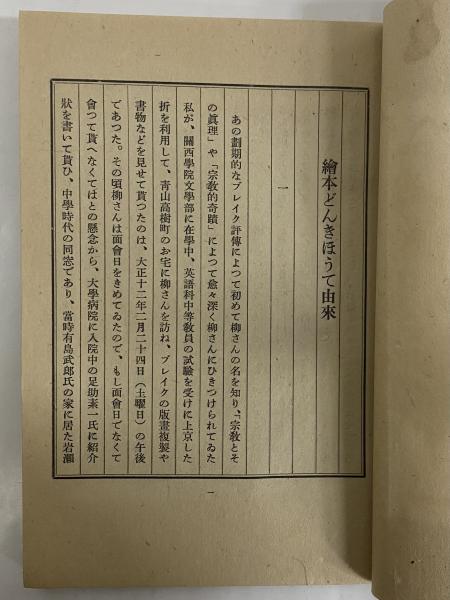 繪本どんきほうて由來
一
あの劃期的なブレイク評傳によつて初めて柳さんの名を知り、「宗教とそ
の眞理」や「宗教的奇蹟」によつて愈々深く柳さんにひきつけられてゐた
私が、關西學院文學部に在學中、英語科中等教員の試驗を受けに上京した
折を利用して、青山高樹町のお宅に柳さんを訪ね、ブレイクの版畫複製や
書物などを見せて貰つたのは、大正十二年二月二十四日（土曜日）の午後
であつた。その頃柳さんは面會日をきめてゐたので、もし面會日でなくて
會つて貰へなくてはとの懸念から、大學病院に入院中の足助素一氏に紹介
狀を書いて貰ひ、中學時代の同窓であり、當時有島武郎氏の家に居た岩瀬
一